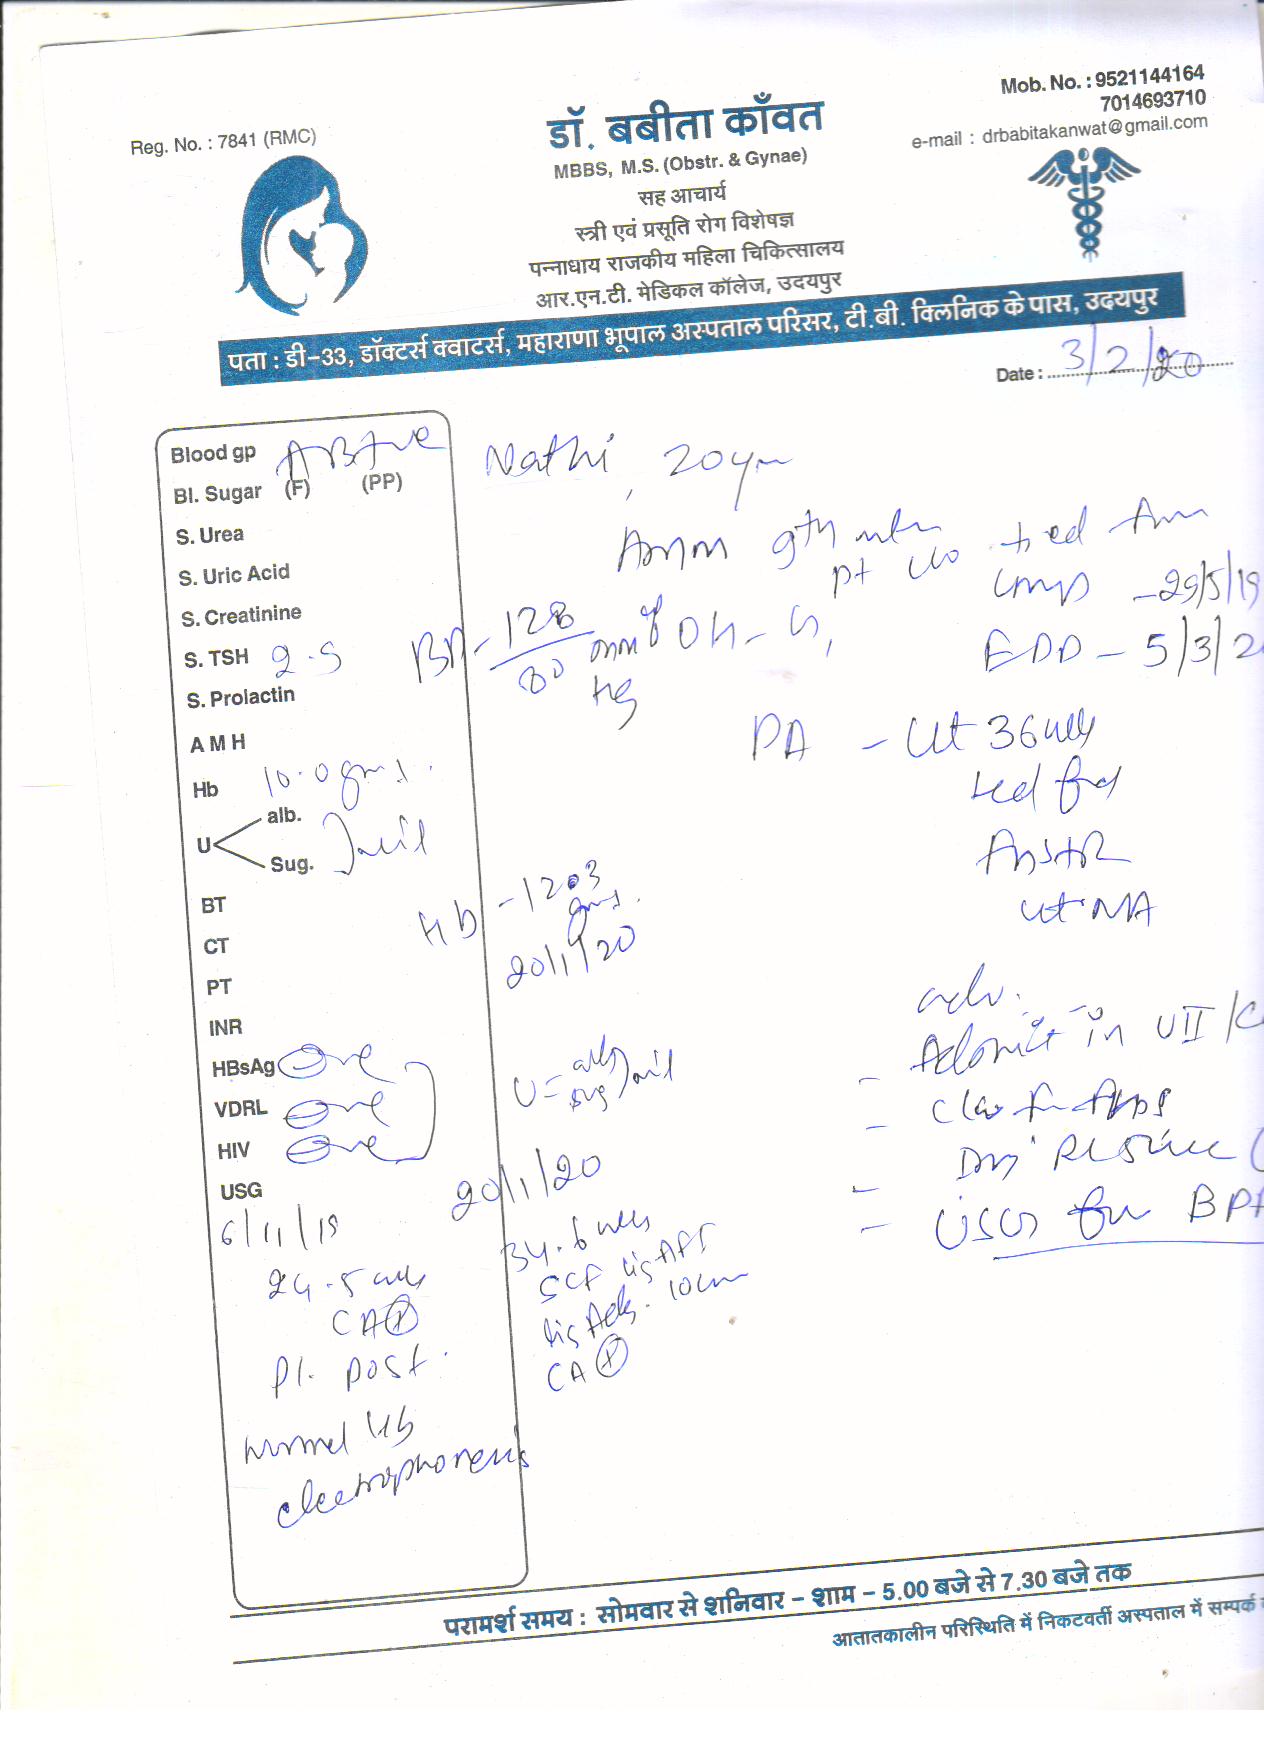 Reg. No. : 7841 (RMC)
Mob. No. : 9521144164
7014693710
e-mail : drbabitakanwat@gmail.com
डॉ. बबीता काँवत
MBBS, M.S. (Obstr. & Gynae)
सह आचार्य
स्त्री एवं प्रसूति रोग विशेषज्ञ
पन्नाधाय राजकीय महिला चिकित्सालय
आर.एन.टी. मेडिकल कॉलेज, उदयपुर
पता : डी-33, डॉक्टर्स क्वाटर्स, महाराणा भूपाल अस्पताल परिसर, टी.बी. क्लिनिक के पास, उदयपुर
Date : 3/2/20
Blood gp AB+ve
Bl. Sugar (F) (PP)
S. Urea
S. Uric Acid
S. Creatinine
S. TSH 2.5
S. Prolactin
A M H
Hb 10.0 gms.
U alb.
Sug. nil
BT
CT
PT
INR
HBsAg
VDRL
HIV
USG
6/11/19
24.5 wks
CA
Pl. post.
normal Hb
electrophoresis
Nathi, 20 yrs
9th
pt
LMP -29/5/19
EDD - 5/3/2
BP - 128
80 mm of Hg
PA - Ut 36 wks
Ut NA
Hb - 12.3 gms.
20/1/20
U = alb
sug nil
20/1/20
34.6 wks
SLF
10 cm
CA
adv.
- Admit in UII/
-
-
- USG for BP
परामर्श समय : सोमवार से शनिवार - शाम - 5.00 बजे से 7.30 बजे तक
आतातकालीन परिस्थिति में निकटवर्ती अस्पताल में सम्पर्क